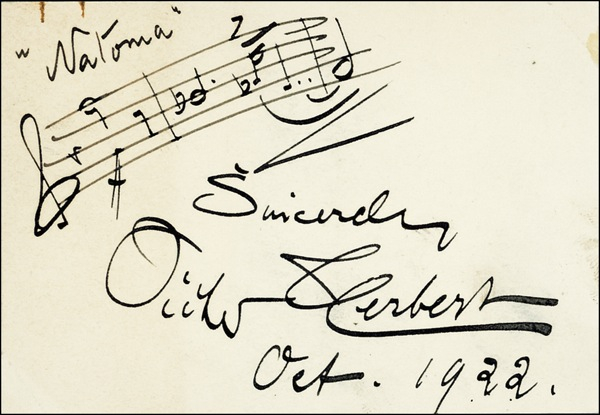 "Natoma"
Sincerely
Victor Herbert
Oct. 1922.